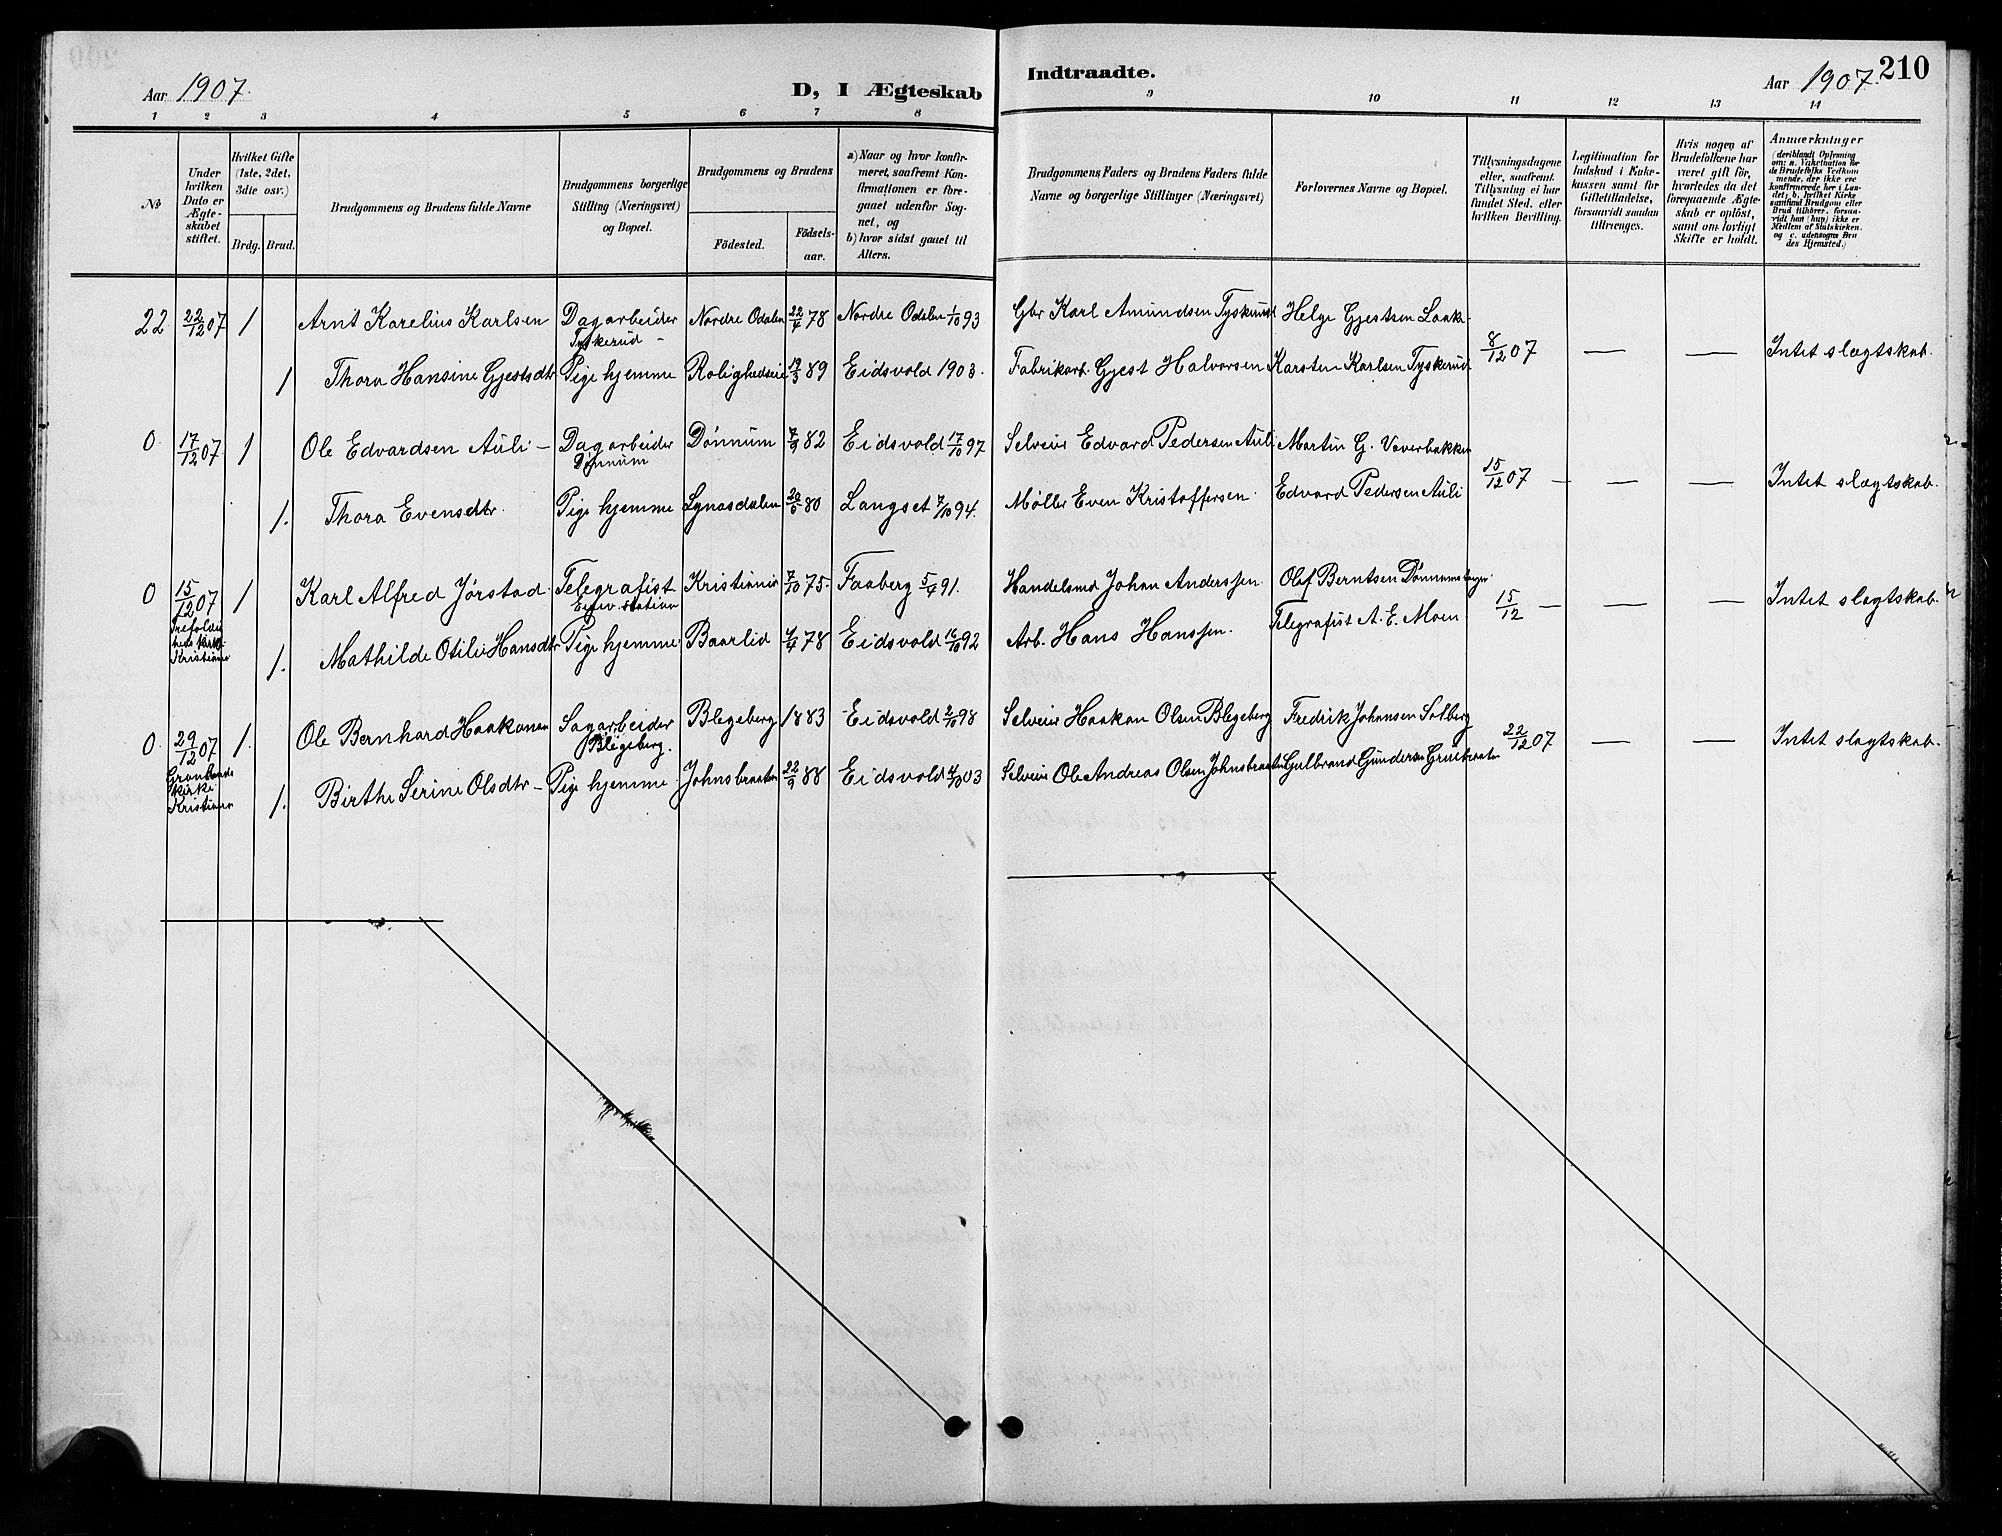 Aar 1907.
D, I Ægteskab
Indtraadte.
Aar 1907. 210
1 2 3 4 5 6 7 8 9 10 11 12 13 14
No
Under
hvilken
Dato er
Ægte-
skabet
stiftet.
Hvilket Gifte
(1ste, 2det,
3die osv.)
Brdg. Brud.
Brudgommens og Brudens fulde Navne
Brudgommens borgerlige
Stilling (Næringsvei)
og Bopæl.
Brudgommens og Brudens
Födested.
Födsels-
aar.
a) Naar og hvor konfir-
meret, saafremt Kon-
firmationen er fore-
gaaet udenfor Sog-
net, og
b) hvor sidst gaaet til
Alters.
Brudgommens Faders og Brudens Faders fulde
Navne og borgerlige Stillinger (Næringsvei)
Forlovernes Navne og Bopæl.
Tillysningsdagene
eller, saafremt
Tillysning ei har
fundet Sted, efter
hvilken Bevilling.
Legitimation for
Indskud i Enke-
kassen samt for
Giftetilladelse,
forsaavidt saadan
tiltrænges.
Hvis nogen af
Brudefolkene har
været gift för,
hvorledes da det
foregaaende Ægte-
skab er oplöst,
samt om lovligt
Skifte er holdt.
Anmærkninger
(deriblandt Oplysning
om: a. Vakcination for
de Brudefolks Vedkom
mende, der ikke ere
konfirmerede her i Lan-
det; b. hvilket Kirke
samfund Brudgom eller
Brud tilhörer, forsaa-
vidt han (hun) ikke er
Medlem af Statskirken.
og c. udensogns Bru
des Hjemsted.)
22 22/12 07 1 Arnt Karelius Karlsen Dagarbeider Nordre Odalen 22/4 78 Nordre Odalen 1/10 93 Gbr Karl Amundsen Tyskerud Helge Gjestsen Laake
Tyskerud
1 Thora Hansine Gjestsdtr Pige hjemme Roligheden 19/3 89 Eidsvold 1903. Fabrikarb. Gjest Halvorsen Karsten Karlsen Tyskerud 8/12 07 — — Intet slægtskab.
0 17/12 07 1 Ole Edvardsen Auli – Dagarbeider Dönnum 7/9 82 Eidsvold 17/10 97 Selveier Edvard Pedersen Auli Martin G.
Dönnum
1. Thora Evensdtr. Pige hjemme 80 Langset 7/10 94. Møller Even Kristoffersen. Edvard Pedersen Auli 15/12 07 — — — Intet slægtskab.
0 15/12 07 1 Karl Alfred Jørstad. Telegrafist Kristiania 7/10 75. Faaberg 5/4 91. Handelsmd Johan Anderssen. Olaf Berntsen
Eidsv. station
Trefoldig
heds kirke
Kristiania
1. Mathilde Otilie Hansdtr Pige hjemme. Baarlid 4/4 78 Eidsvold 16/10 92 Arb. Hans Hanssen. Telegrafist A. E. Moen 15/12 — — — Intet slægtskab.
0. 29/12 07 1. Ole Bernhard Haakonsen Sagarbeider Blegeberg 1883 Eidsvold 2/10 98 Selveier Haakon Olsen Blegeberg Fredrik Johansen Solberg
Blegeberg.
kirke
Kristiania
1. Birthe Serine Olsdtr – Pige hjemme Johnsbraaten 22/9 88 Eidsvold 4/10 03 Selveier Ole Andreas Olsen Johnsbraaten Gulbrand Gundersen 22/12 07 — — Intet slægtskab.